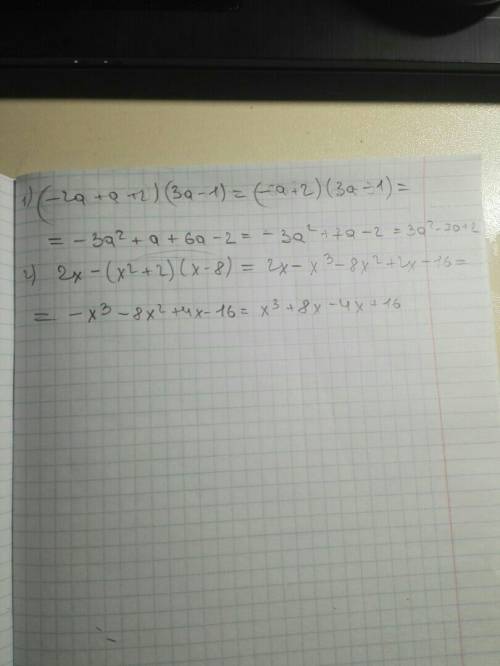 1) (-2a + a + 2)(3a - 1) = (-a + 2)(3a - 1) =
= -3a² + a + 6a - 2 = -3a² + 7a - 2 = 3a² - 7a + 2
2) 2x - (x² + 2)(x - 8) = 2x - x³ - 8x² + 2x - 16 =
= -x³ - 8x² + 4x - 16 = x³ + 8x - 4x + 16